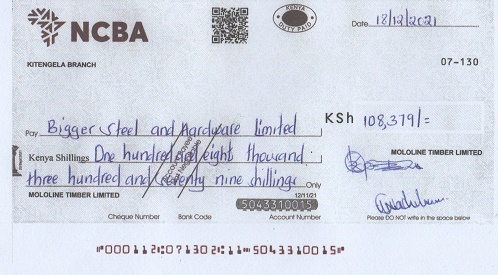 NCBA
KENYA
DUTY PAID
Date 18/12/2021
KITENGELA BRANCH
07-130
Pay Bigger Steel and Hardware Limited
KSh 108,379/=
Kenya Shillings One hundred and eight thousand
three hundred and seventy nine shillings Only
Account Payee
Not Negotiable
MOLOLINE TIMBER LIMITED
MOLOLINE TIMBER LIMITED
12/11/21
5043310015
Cheque Number Bank Code Account Number
Please DO NOT write in the space below
"000112"071302"11"5043310015"